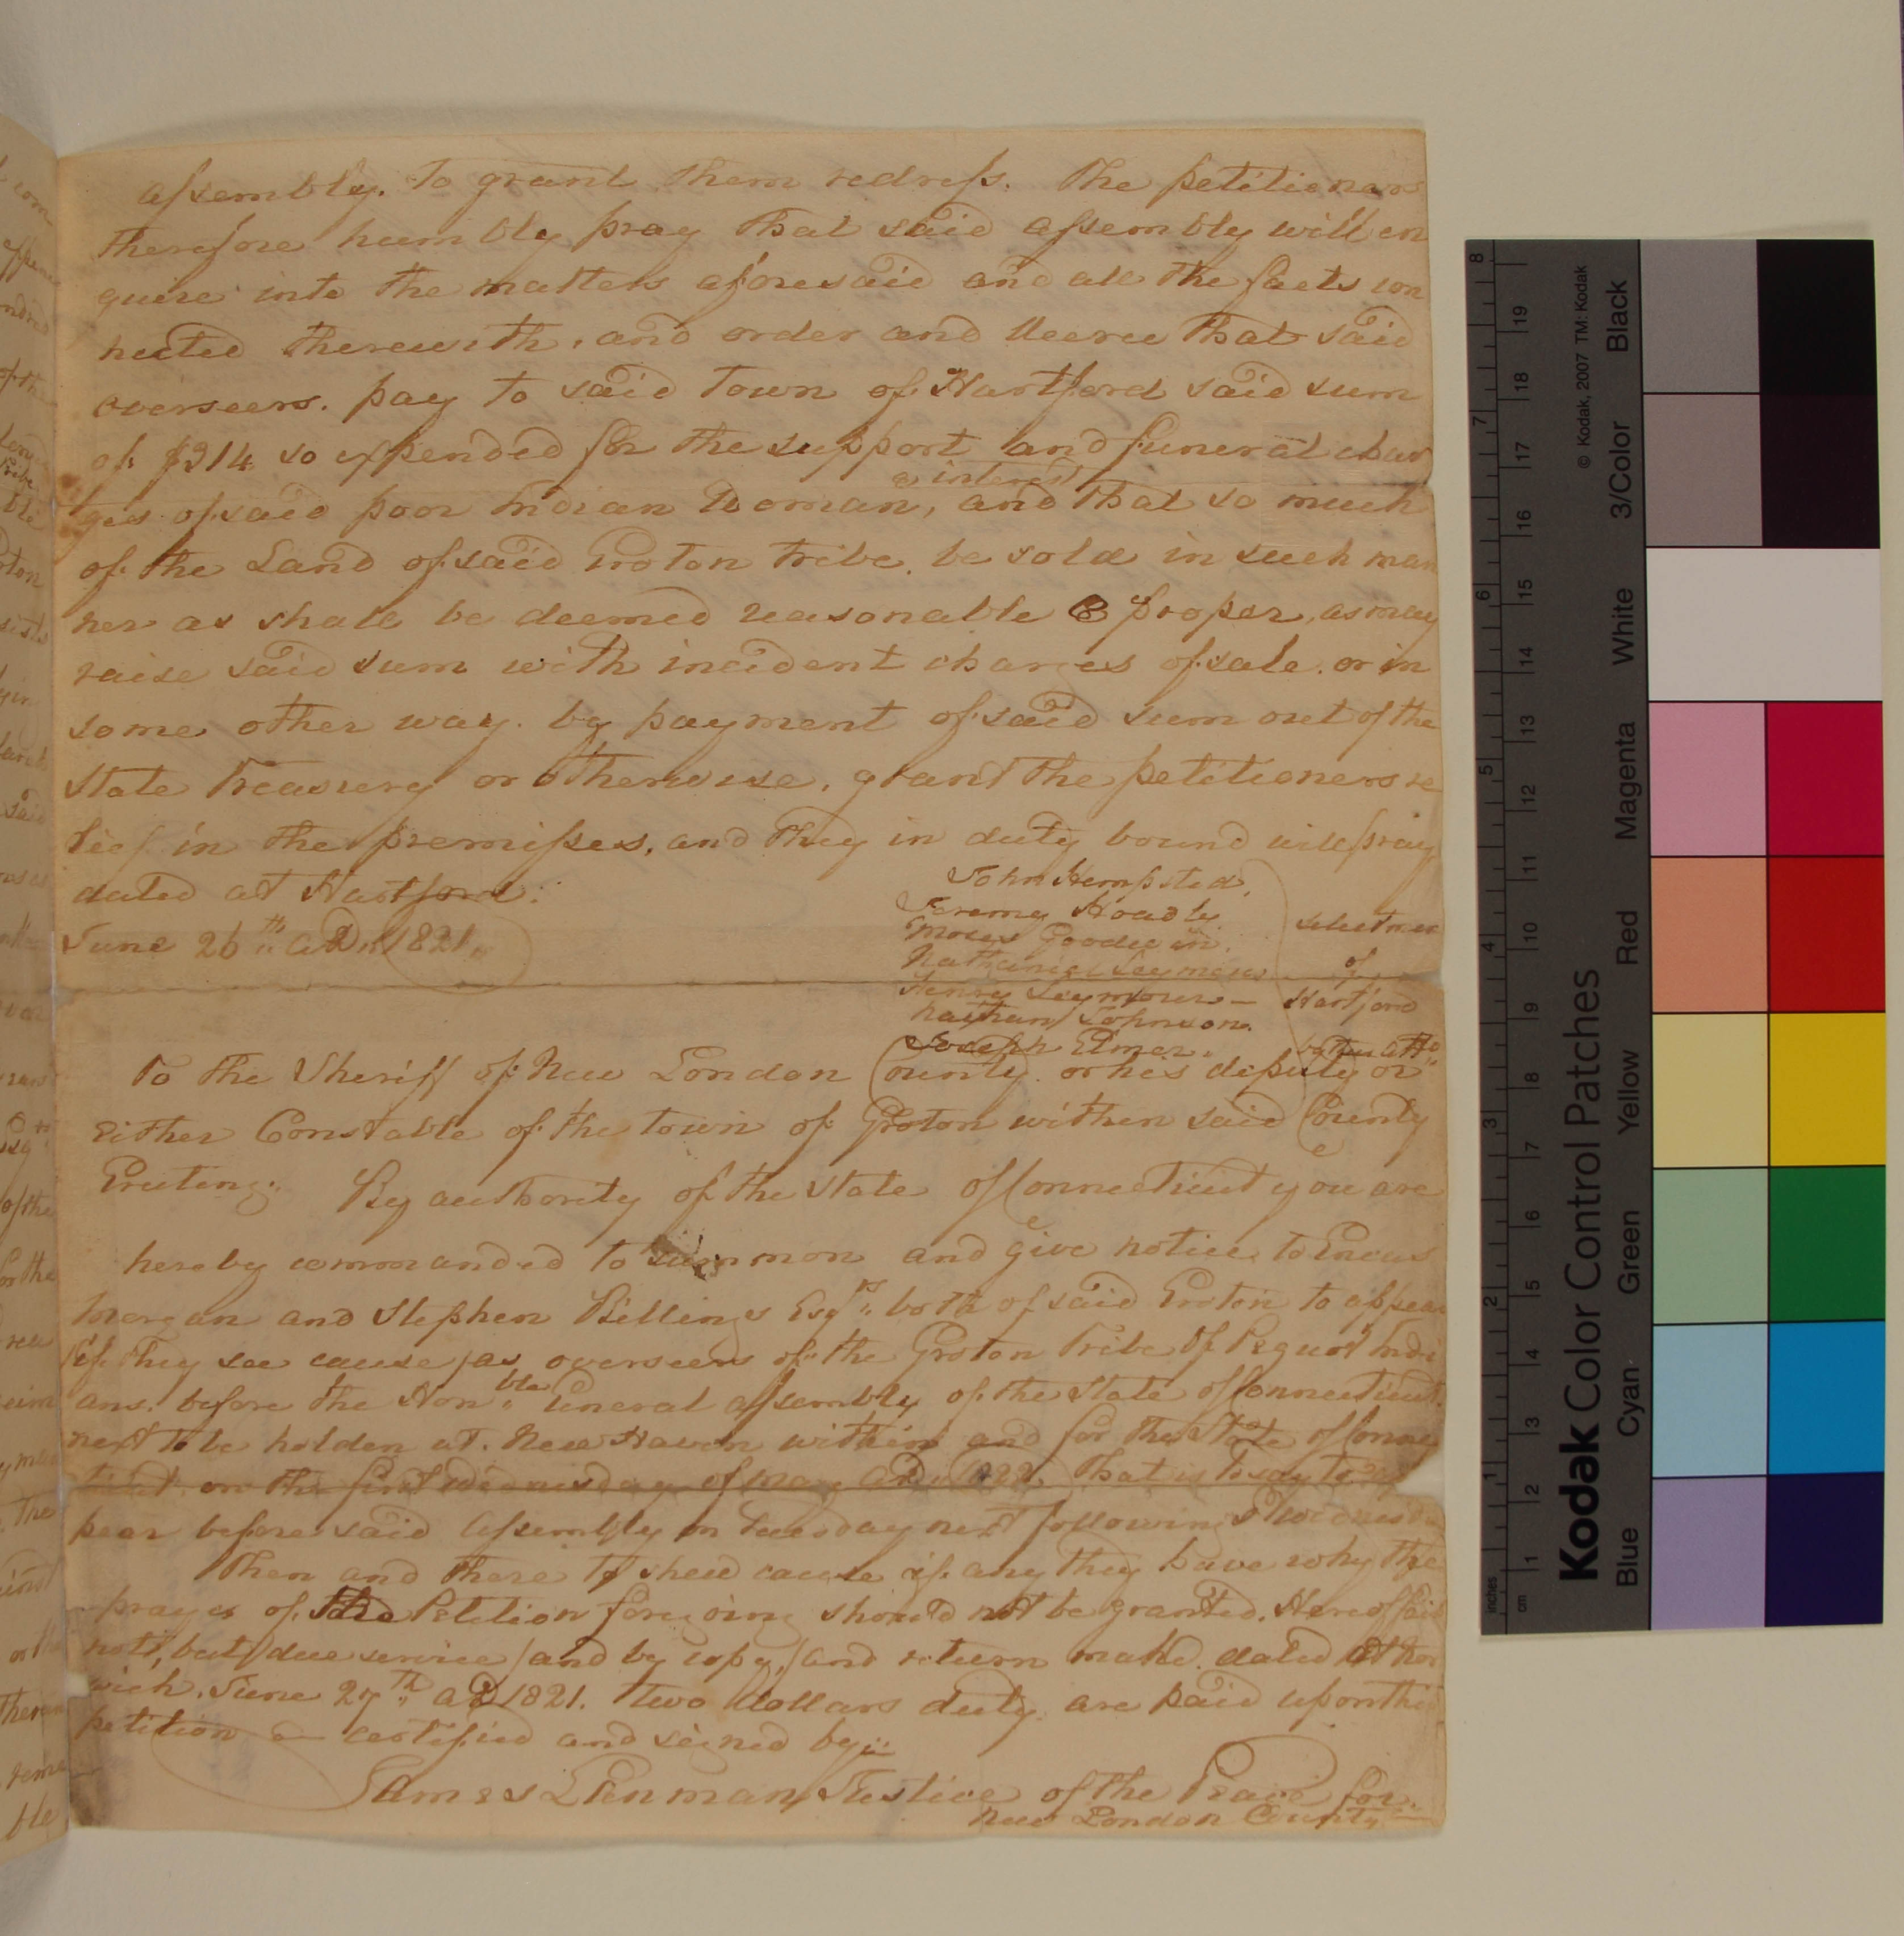 assembly. to grant them redress. The petitioners
therefore humbly pray that said assembly will en
quire into the matters aforesaid and all the facts con
nected therewith, and order and decree that said
overseers. pay to said town of Hartford said sum
of $314 so expended for the support and funeral char
& interest
ges of said poor Indian Woman, and that so much
of the Land of said Groton tribe. be sold in such man
ner as shall be deemed reasonable & proper, as may
raise said sum with incident charges of sale. or in
some other way. by payment of said sum out of the
State Treasury or otherwise, grant the petitioners re
lief in the premises, and they in duty bound will pray
dated at Hartford.
June 26th AD 1821
John Hempsted,
Jeremy Hoadly
Moses Goodwin.
Nathaniel Seymour
Henry Seymour
Nathan Johnson.
Joseph Elmer.
Selectmen
of
Hartford
To the Sheriff of New London County. or his deputy or
Either Constable of the town of Groton within said County
Greeting. By authority of the State of Connecticut you are
hereby commanded to summon and give notice to
Morgan and Stephen Billings Esqrs both of said Groton to appear
(if they see cause) as overseers of the Groton Tribe Of Pequot Indi
ans. before the Honble General assembly of the State of Connecticut.
next to be holden at. New Haven within and for the State of Connec
ticut on the first Wednesday of May AD 1822. that is to say to ap
pear before said assembly on Tuesday next following sd Wednesday
Then and there to shew cause if any they have why the
prayer of the Petition foregoing should not be granted. Hereof fail
not, but due service (and by copy,) and return make. dated at Nor
wich. June 27th AD 1821. two dollars duty. are paid upon this
petition & certified and signed by
James Justice of the Peace for.
New London County
© Kodak, 2007 TM: Kodak
Kodak Color Control Patches
Blue Cyan Green Yellow Red Magenta White 3/Color Black
inches 1 2 3 4 5 6 7 8
cm 1 2 3 4 5 6 7 8 9 10 11 12 13 14 15 16 17 18 19